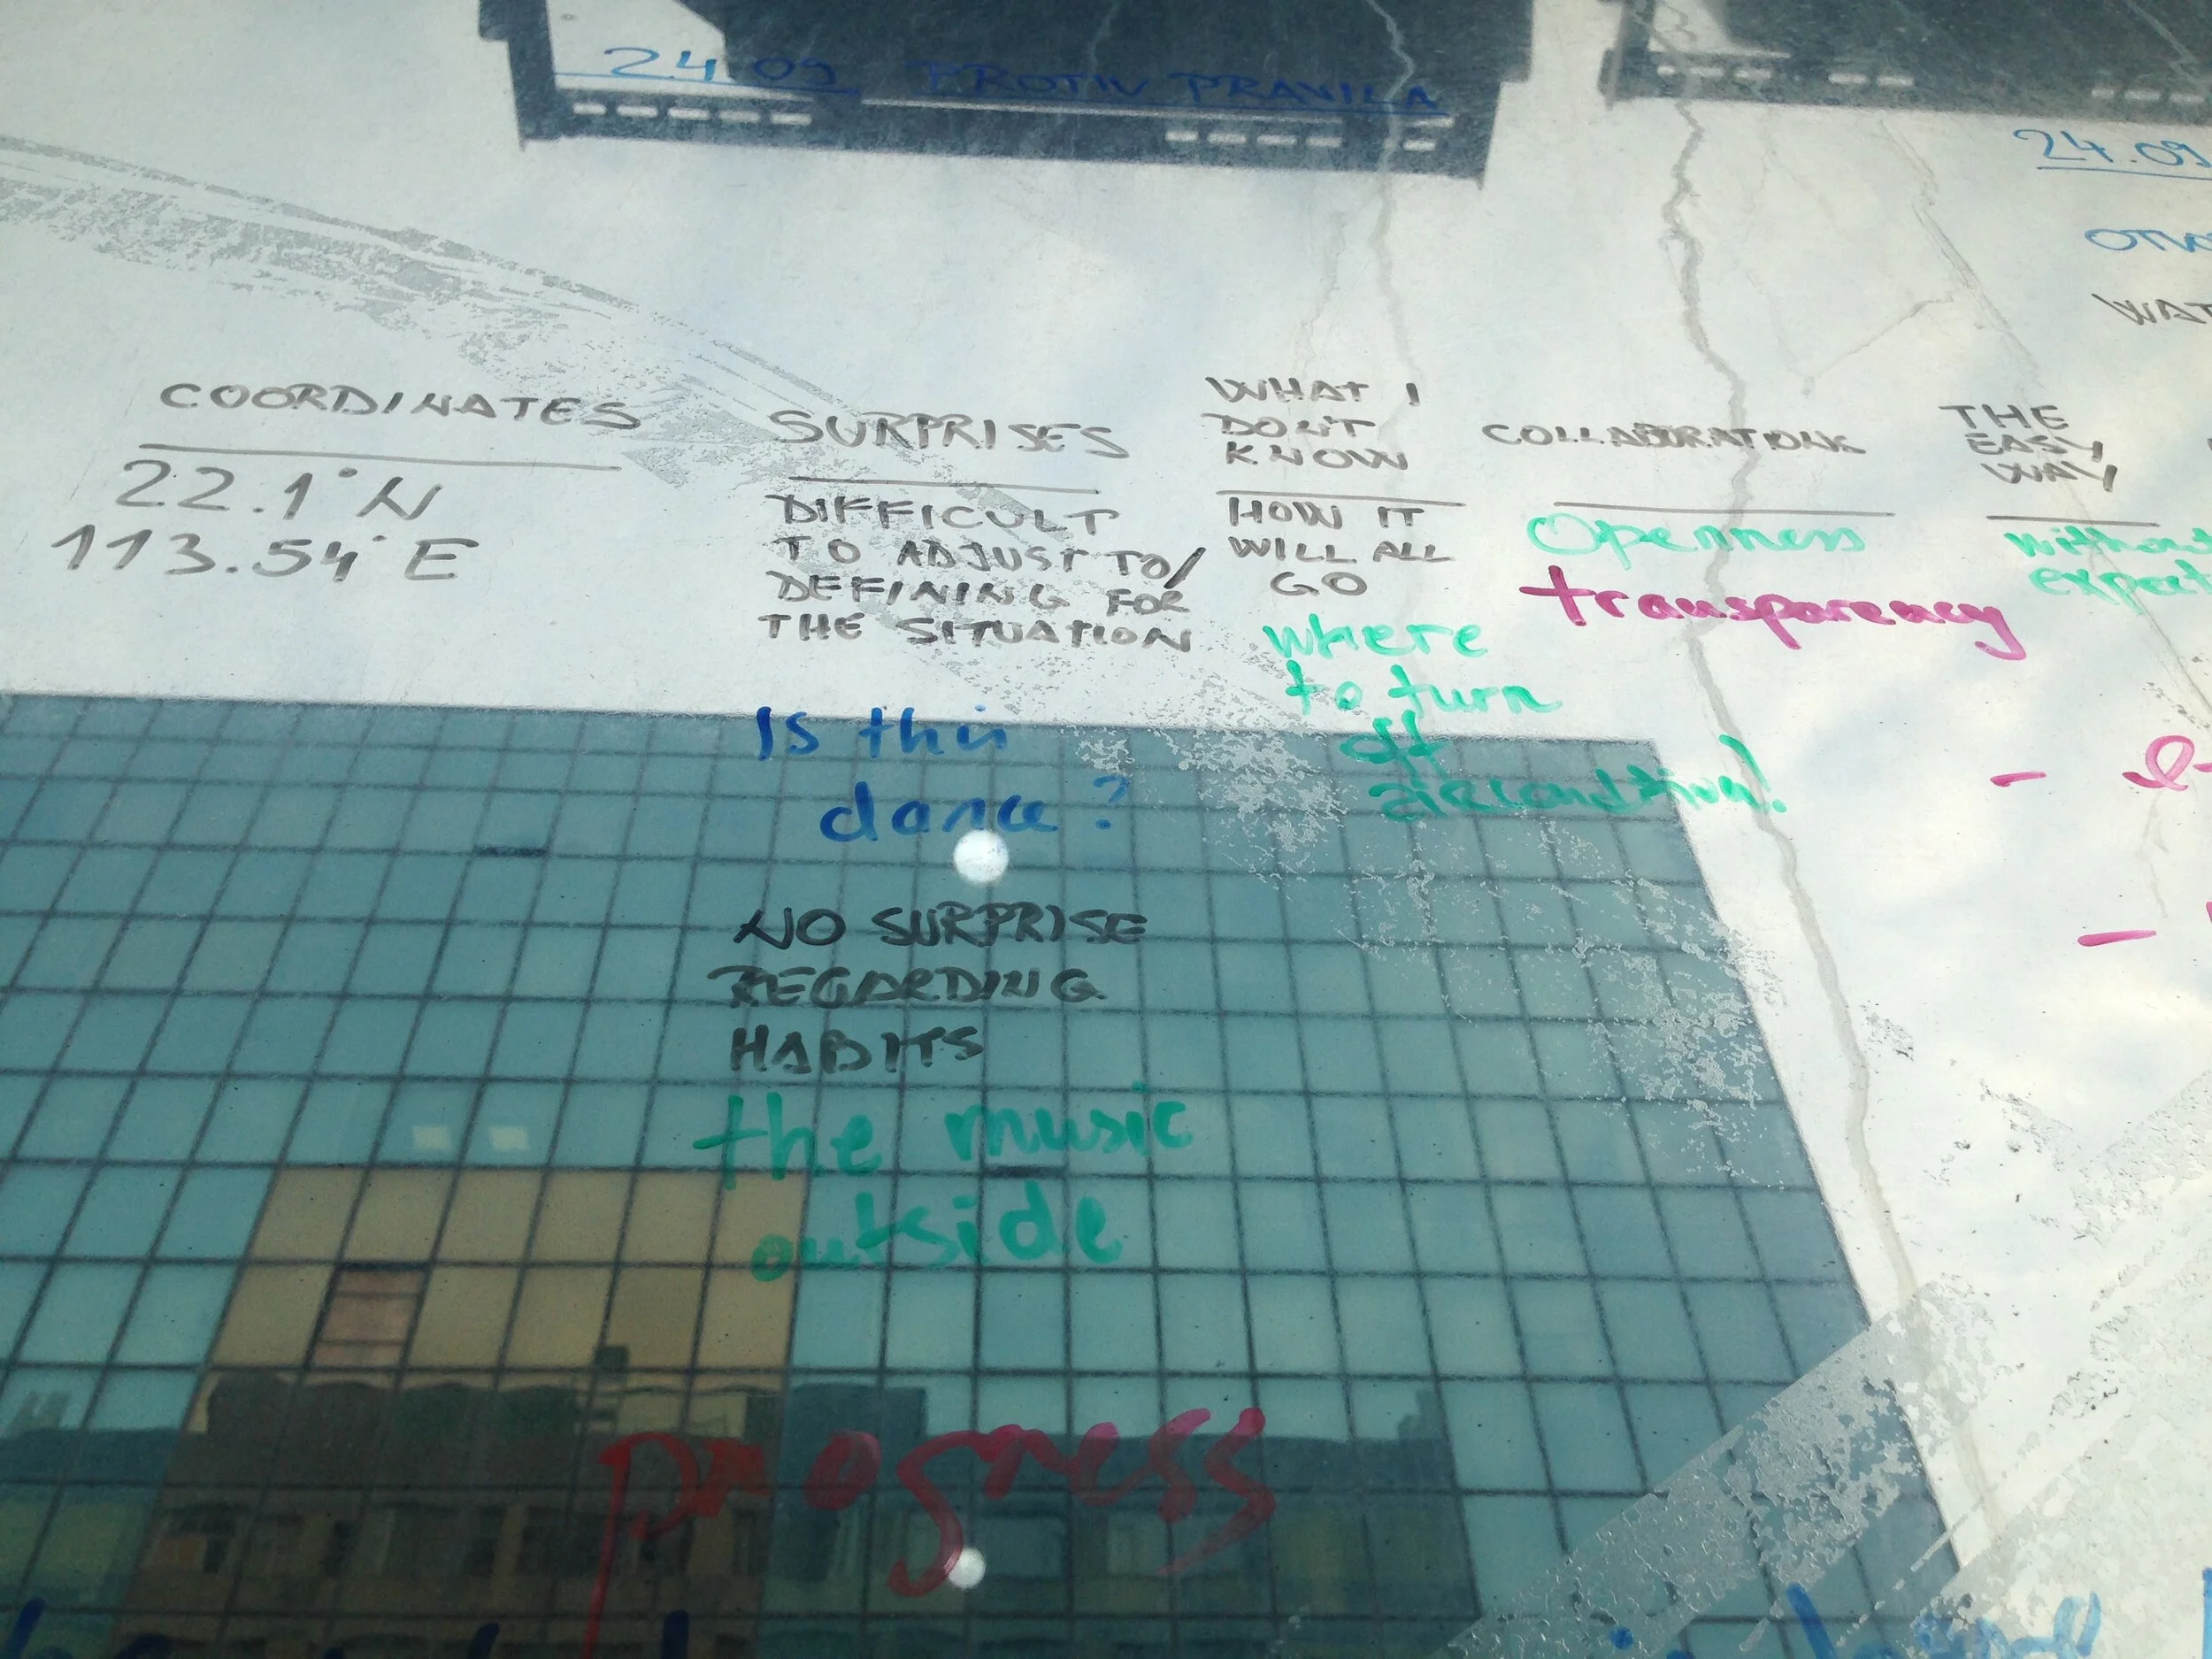 24.09. PROTIV PRAVILA
24.09
COORDINATES
22.1°N
113.54°E
SURPRISES
DIFFICULT
TO ADJUST TO/
DEFINING FOR
THE SITUATION
Is this
dance?
NO SURPRISE
REGARDING
HABITS
the music
outside
progress
WHAT I
DON'T
KNOW
HOW IT
WILL ALL
GO
where
to turn
off
aircondition!
COLLABORATIONS
Openness
transparency
THE
EASY
WAY
without